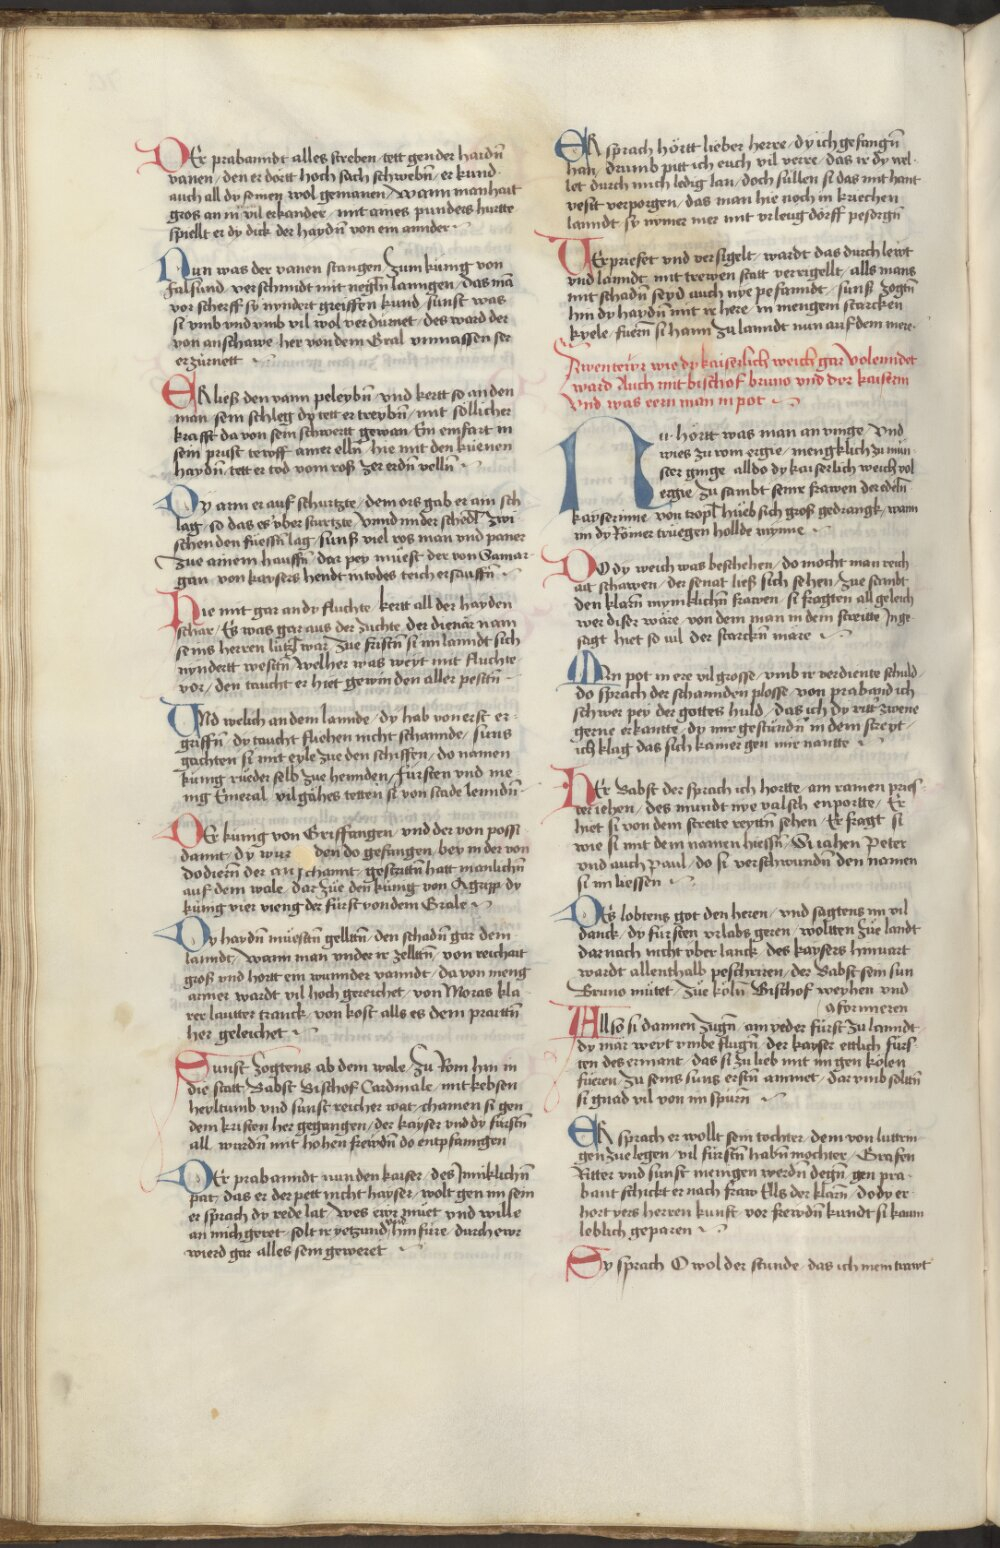 DEr prabanndt alles streben / tett gen der hardñ
vanen / den er dortt hoch sach schwebñ / er kund
auch all dy seinen wol gemanen / Wann man hait
gros an im vil erkander / mit aines punders hurtte
spiellt er dy dick der haydñ von ein annder
Nun was der vanen stangen Zum kúnig von
Falsund verschmidt mit neglñ lanngen / das mã
vor scherff sy nyndert greiffen kund / sunst was
si vmb vnd vmb vil wol verdúrnet / des ward der
von anschawe / her von dem Gral vnmassen ser
erzúrnett
ER ließ den vann peleybñ / vnd kertt so an den
man / sein schleg dy tett er treybñ / mit sôllicher
krafft da von sein schwertt gewan / Ein einfart in
sein prust tewff ainer ellñ / hie mit den kúenen
haydñ / tett er tod vom roß zer erdñ vellñ
Dy arm er auf schurtzte / dem ors gab er ain sch
lag / so das es vber sturtzte / Vnnd in der schedl zwi
schen den fúessñ lag / sunß viel ros man vnd paner
Zue ainem hauffñ / dar pey múest der von Samar
gan / von kaysers hendt in todes teich ersauffñ
Hie mit gar an dy fluchte / kertt all der hayden
schar / Es was gar aus der zuchte / der dienár nam
seins herren lútzl war / Zue fristñ si im lanndt sich
nyndertt westñ / Welher was weyt mit fluchte
vor / den taucht er hiet gewin den aller pestñ
Vnd welich an dem lannde / dy hab von erst er
griffñ / dy taucht fliehen nicht schannde / suns
gachten si mit eyle zue den schiffen / do namen
kúnig rúeder selb zue hennden / Fúrsten vnd me
nig Emeral / vil gáhes tetten si von stade lenndñ
DEr kúnig von Griffangen / vnd der von possi
damt / dy wur den do gefangen / bey in der von
dodiern der an schannt / gestrittñ hatt manlichñ
auf dem wale / dar zúe den kúnig von Agripp / dy
kúnig vier vieng der fúrst von dem Grale
Dy haydñ múestñ gelltñ / den schadñ gar dem
lanndt / Wann man vnder ir zelltñ / von reichait
groß vnd hortt ein wunnder vanndt / da von meng
armer wardt vil hoch gereichet / von Moras kla
rer lautter tranck / von kost alls es dem prauttñ
her geleichet
Sunst zogtens ab dem wale / Zu Rom hin in
die statt / Babst Bischof Cardinale / mit kebsen
heyltumb vnd sunst reicher wat / chamen si gen
dem kristen her gegangen / der kayser vnd dy fúrstñ
all / wurdñ mit hohen frewdñ do entpfanngen
DEr prabanndt nun den kaiser / des Inniklichñ
pat / das er der pett nicht hayser / wolt gen im sein
er sprach dy rede lat / Wes ewr múet vnd wille
an mich geret / solt ir yetzund vnd hin fúre / durch ewr
wierd gar alles sein geweret
ER sprach hôrtt lieber herre / dy ich gefangñ
han / drumb pitt ich euch vil verre / das ir dy wel
let durch mich ledig lan / doch sullen si das mit hant
vesit verporgen / das man hie noch in kriechen
lanndt / sy nymer mer mit vrleug dôrff pesorgñ
VErpriefet vnd versigelt / wardt das durch lewt
vnd lanndt / mit trewen statt verrigellt / alls mans
mit schadñ seyd auch nye pefanndt / sunß zogñ
hin dy haydñ mit ir here / in mengem starcken
kyele / fuern si hann zu lanndt nun auf dem mere
Awentewr wie dy kaiserlich weich gar volenndet
ward Auch mit bischof bruno vnd der kaiserin
Vnd was eern man in pot
Nu hôrtt was man an vinge / Vnd
wies zu rom ergie / mengklich zu mún
ster ginge / alldo dy kaiserlich weich vol
ergie / Zu sambt seinr frawen der edelñ
kayserinne / von tropl húeb sich groß gedrangk / wann
im dy Rômer trúegen hollde mynne
DO dy weich was beschehen / do mocht man reich
ait schawen / der senat ließ sich sehen / Zúe sambt
den klarñ mynniklichñ frawen / si fragten all geleich
wer diser wáre / von dem man in dem streitte Inge
sagt / hiet so vil der starckñ máre
MAn pot in ere vil grosse / vmb ir verdiente schuld
do sprach der schannden plosse / von praband ich
schwer pey der gottes huld / das ich dy ritt zwene
gerne erkantte / dy mir gestúndñ in dem streyt
ich klag das sich kainer gen mir nantte
DEr Babst der sprach ich hortte / ain ramen pries
ter iehen / des mundt nye valsch enportte / Er
hiet si von dem streitte reyttñ sehen / Er fragt si
wie si mit dem namen hiessñ / Si iahen Peter
vnd auch Paul / do si verschwundñ den namen
si im liessen
DEs lobtens got den heren / vnd sagtens im vil
danck / dy fúrsten vrlabs geren / woltten zúe landt
dar nach nicht vber lanck / des kaysers hinuart
wardt allenthalb peschriren / der Babst sein sun
Bruno mútet / Zúe kôlñ Bischof weyhen vnd
aformieren
Allso si dannen zugñ / ain yeder fúrst zu lanndt
dy már weyt vmbe flugñ / der kayser ettlich fúrs
ten des ermant / das si zu lieb mit im gen kôlen
fúeren / Zu seins suns erstñ ammet / dar vmb soltñ
si gnad vil von im spúrñ
ER sprach er wollt sein tochter / dem von luttrin
gen zue legen / vil fúrstñ habñ mochter / Grafen
Ritter vnd sunst meingen werdñ degñ / gen pra
bant schickt er nach fraw Els der klarñ / do dy er
hort yers herren kunft / vor frewdñ kundt si kaum
leblich geparen
Sy sprach O wol der stunde / das ich mein trawt